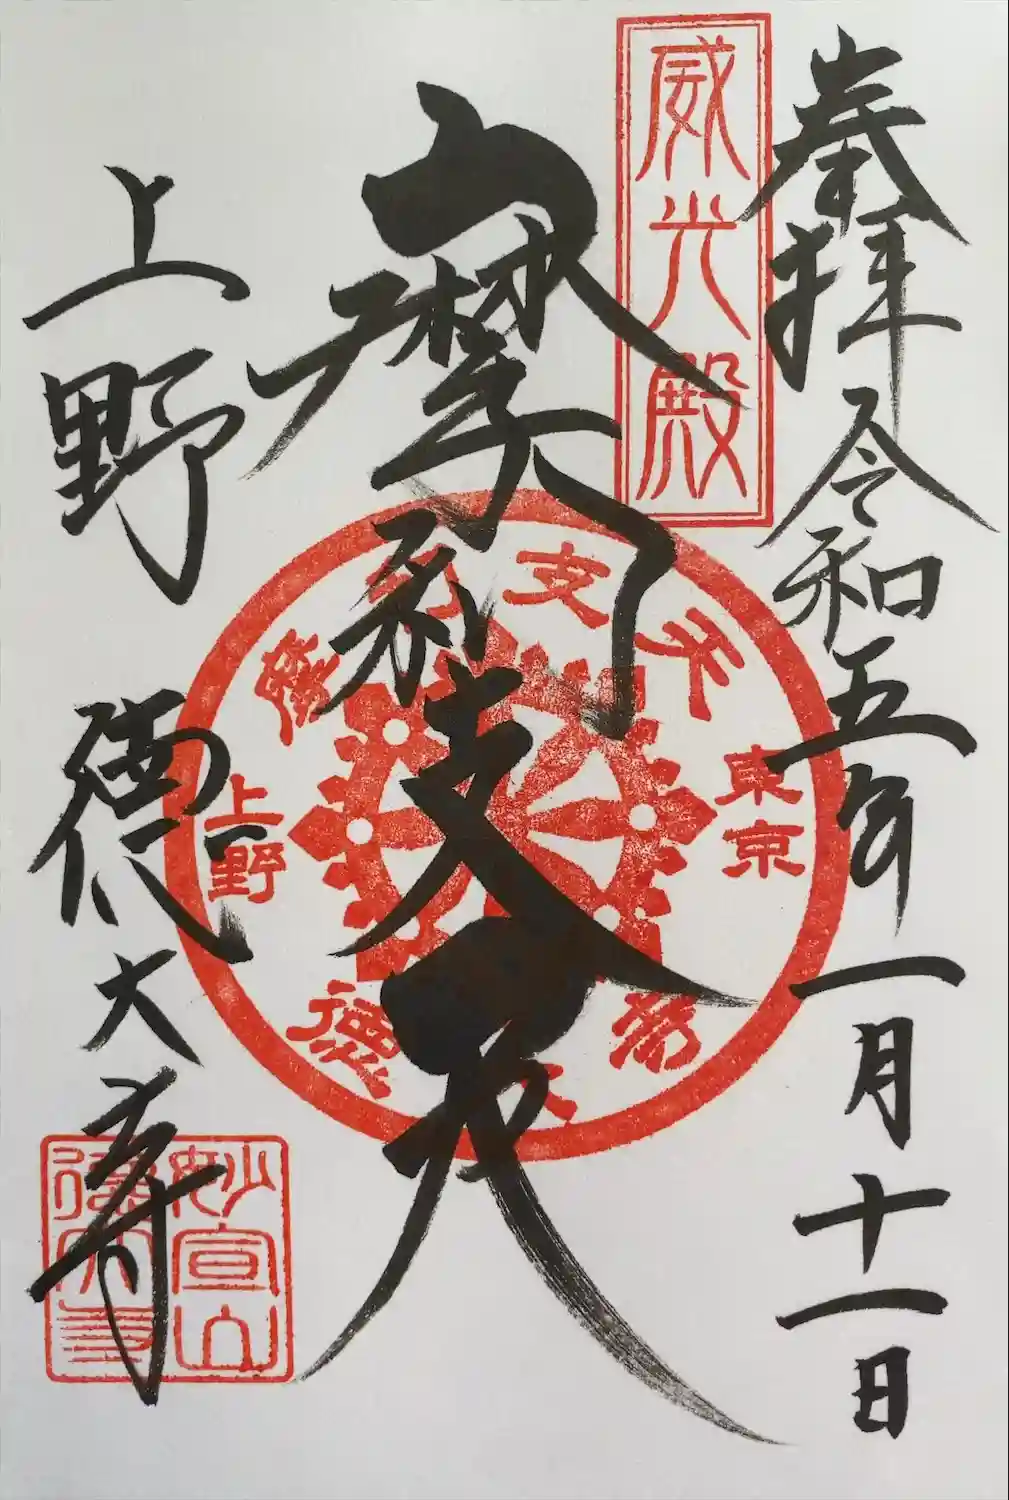 奉拝 令和五年一月十一日
威光殿
摩利支天
摩利支天
東京
上野
徳大寺
上野 徳大寺
妙宣山
徳大寺